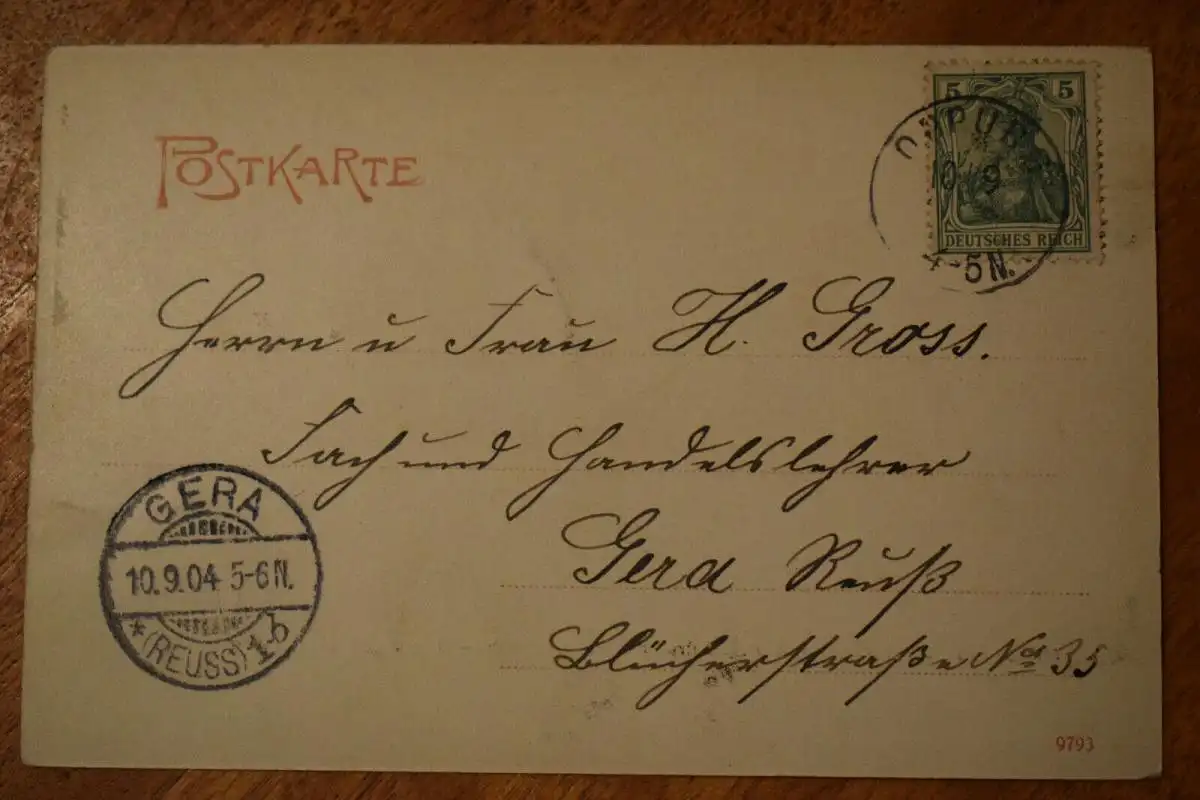 POSTKARTE
5 5
DEUTSCHES REICH
-5N.
Herrn u Frau H. Gross.
Fach und Handelslehrer
Gera Reuß
Blücherstraße No 35
GERA
10.9.04 5-6N.
* (REUSS) 1b
9793